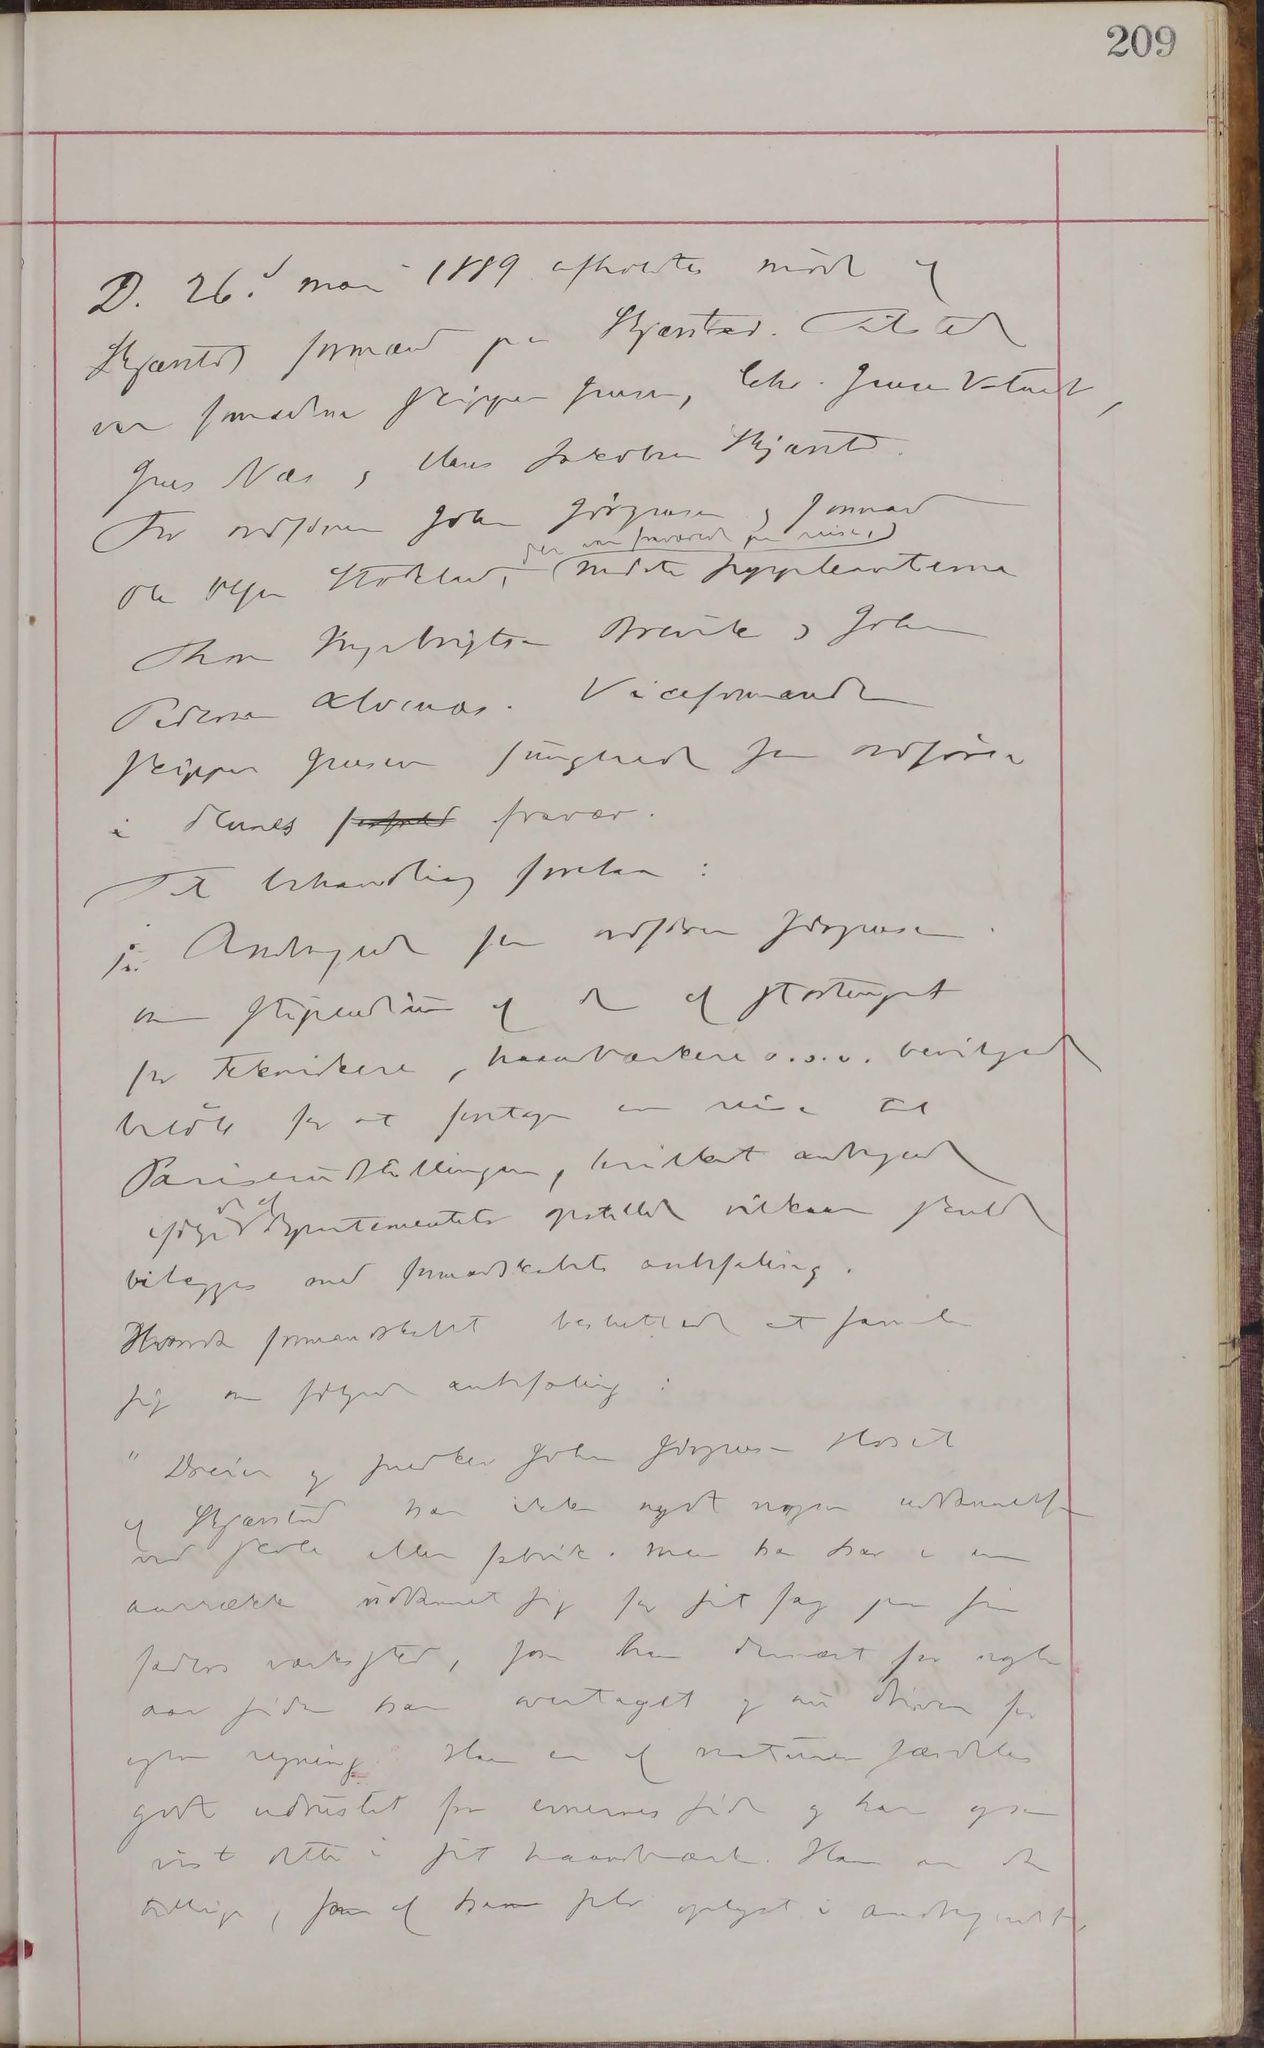 209
D. 26.d mai 1889 afholdtes møde af
Skjærstad formand paa Skjærstad. Tilstede
var formændene Skipper Jensen, Chr. Jensen Vatnet,
Jens Næs, Hans Jakobsen Skjærstad.
For ordføreren John Jørgensen og formand
der var fraværende paa reise,
Ole Olsen Stokland, mødte suppleanterne
Thore Ingebrigtsen Breivik og John
Pedersen Alvenes. Viceformanden
Skipper Jensen fungerede som ordfører
i dennes forfald fravær.
Til behandling forelaa:
1. Andragende fra ordfører Jørgensen
om stipendium af de af storthinget
for teknikere, haandværkere o.s.v. bevilgede
beløb for at foretage en reise til
Pariserudstillingen, hvilket andragende
ifølge de af departementets opstillede vilkaar skulde
bilægges med formandskabets anbefaling.
Hvorefter formandskabet besluttede at samle
sig om følgende anbefaling:
" Dreier og snedker John Jørgensen Hoset
af Skjærstad har ikke nydt nogen uddannelse
ved skole eller fabrik. Men han har i en
aarrække uddannet sig for sit fag paa sin
faders værksted, som han dernæst for nogle
aar siden har overtaget og nu driver for
egen regning. Han er af naturen særdeles
godt udrustet fra evnernes side og har ogsaa
vist dette i sit haandværk. Han er der
tillige, som af ham selv oplyst i andragendet,